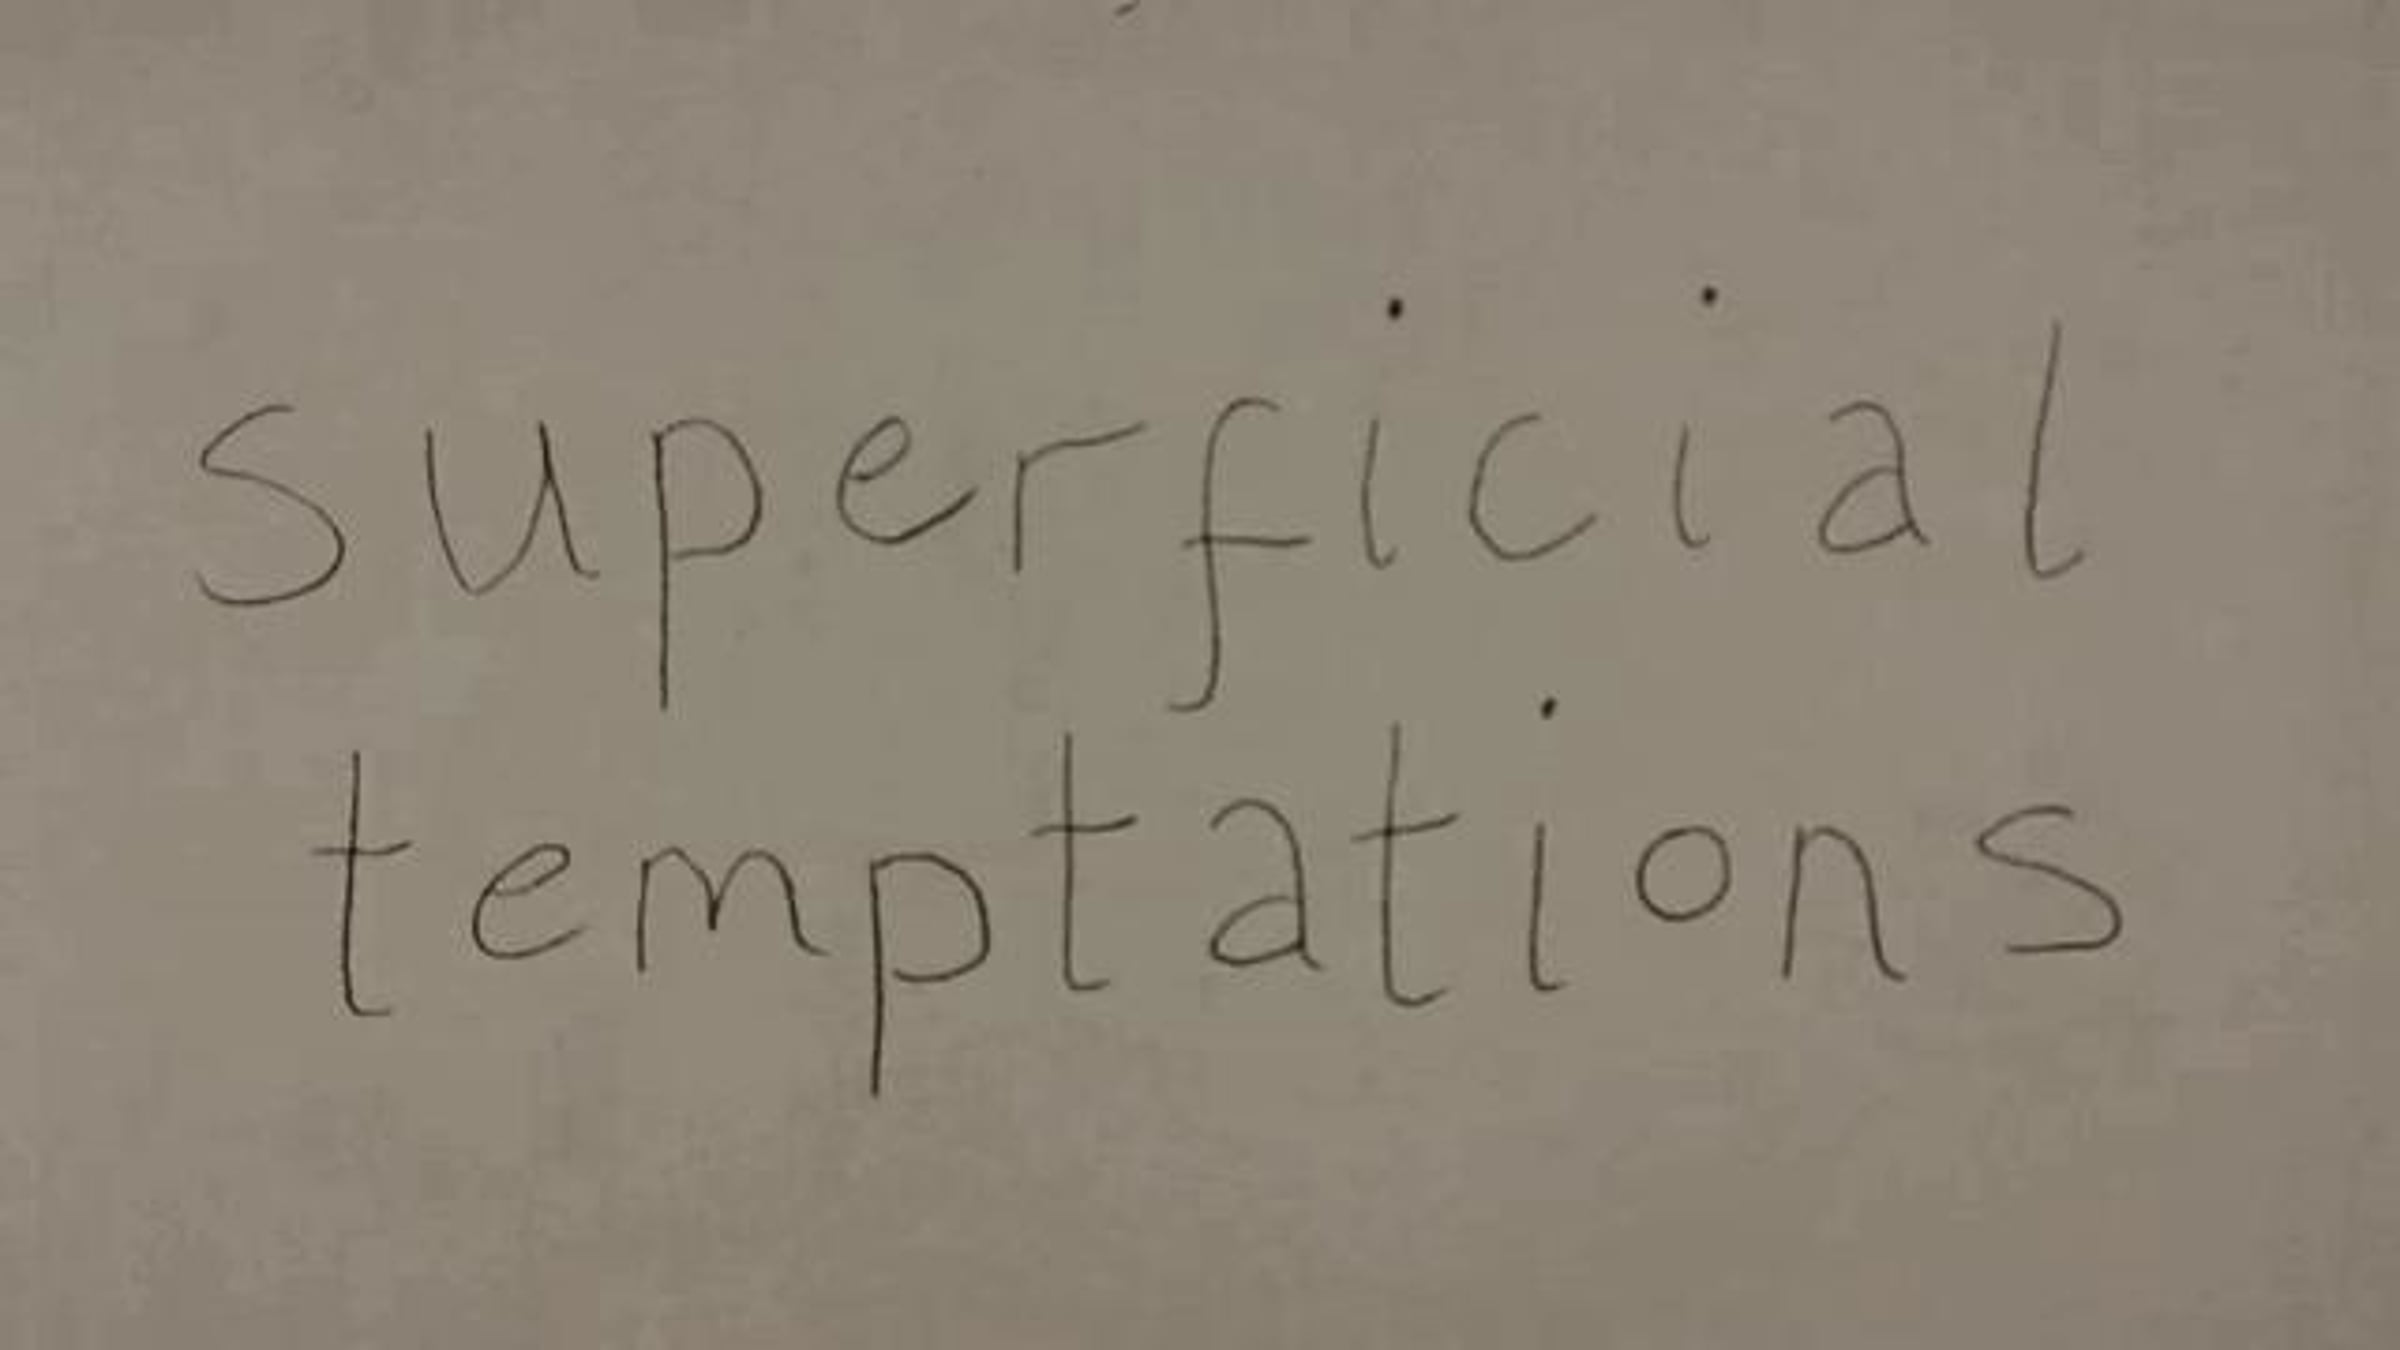 superficial
temptations